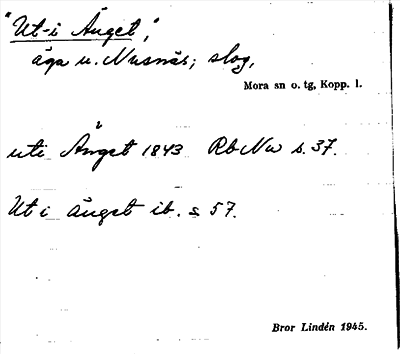 "Ut-i Änget",
äga u. Nusnäs; slog,
Mora sn o. tg, Kopp. l.
uti Änget 1843 Rb Nu s. 37.
Ut i änget ib. s 57.
Bror Lindén 1945.